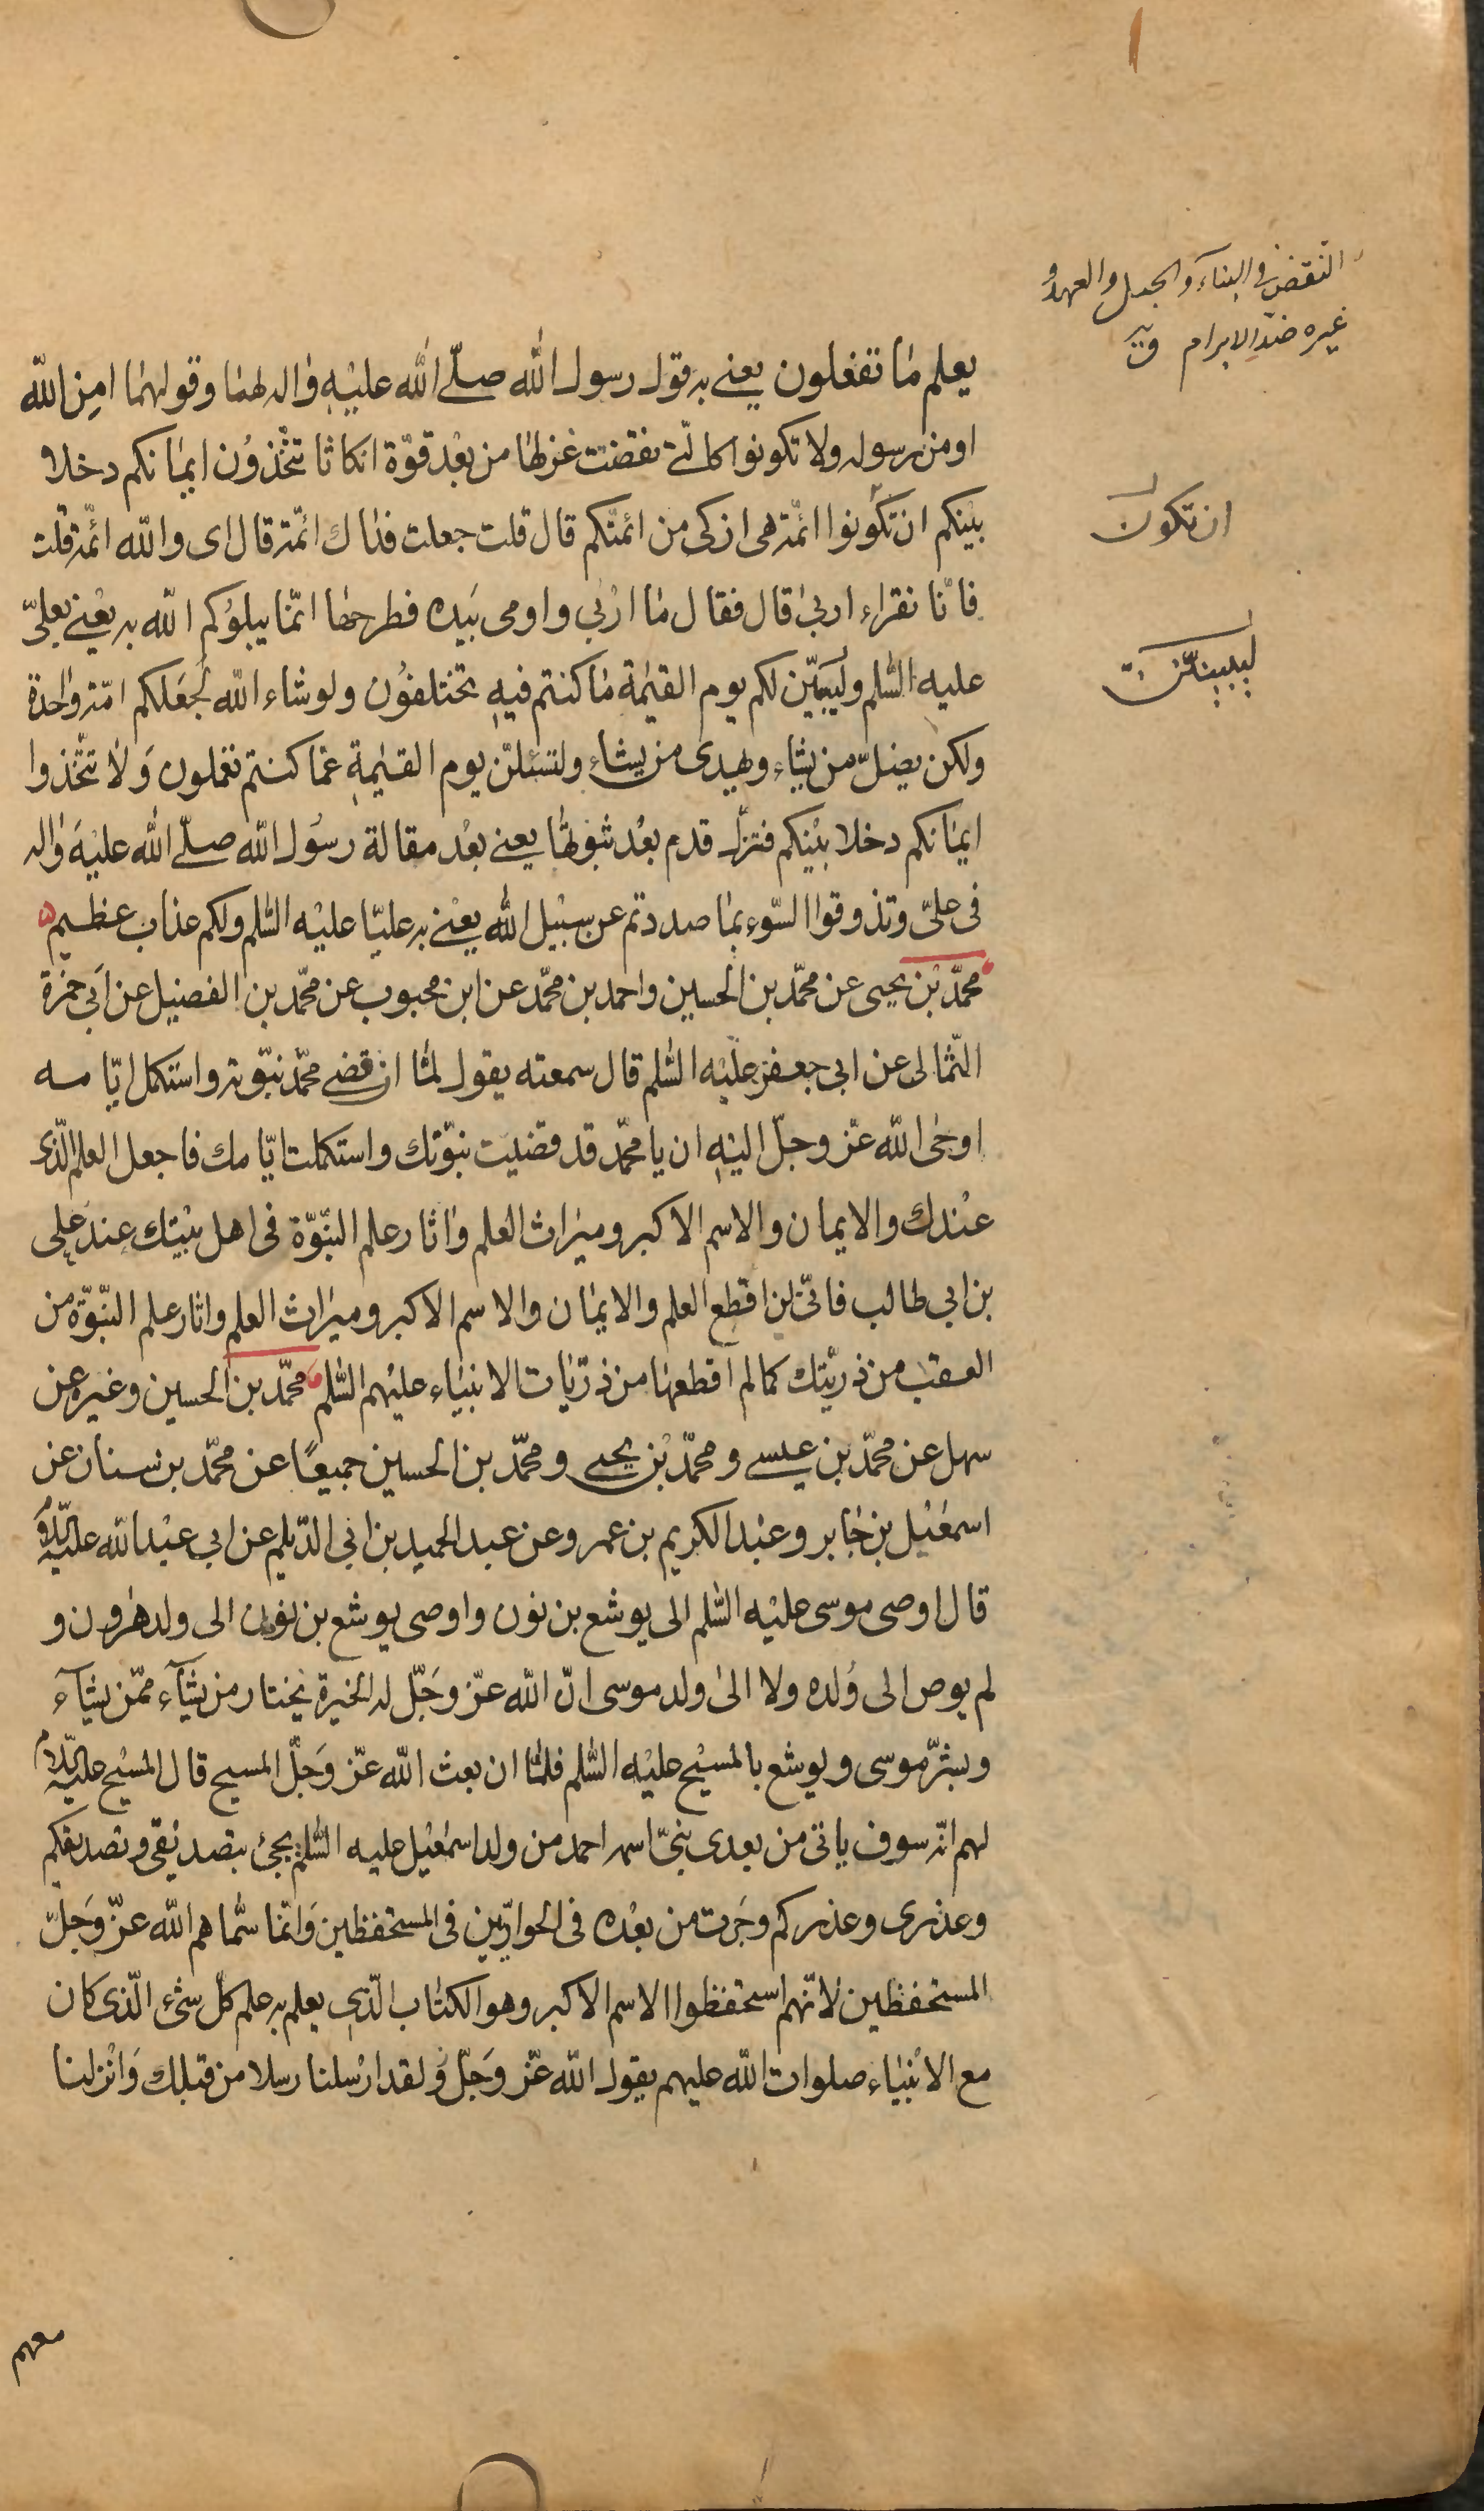 النقض في البناء والحبل والعهد و
غيره ضد الابرام ق
ان تكون
ليبيننّ
يعلم ما تفعلون يعنى به قول رسول الله صلّى الله عليه واله لهما وقولهما امن الله
او من رسوله ولا تكونوا كالّتى نقضت غزلها من بعد قوّة انكاثا تتّخذون ايمانكم دخلا
بينكم ان تكونوا ائمّة هى ازكى من ائمتّكم قال قلت جعلت فداك ائمّة قال اى والله ائمّة قلت
فانّا نقراء اربى قال فقال ما اربى واومى بيده فطرحها انّما يبلوكم الله به يعنى بعلىّ
عليه السّلم وليبيّن لكم يوم القيمة ما كنتم فيه تختلفون ولو شاء الله لجعلكم امّة واحدة
ولكن يضلّ من يشاء ويهدى من يشاء ولتسئلنّ يوم القيمة عما كنتم تعملون ولا تتّخذوا
ايمانكم دخلا بينكم فتزلّ قدم بعد ثبوتها يعنى بعد مقالة رسول الله صلّى الله عليه واله
فى علىّ وتذوقوا السّوء بما صددتم عن سبيل الله يعنى به عليّا عليه السّلم ولكم عذاب عظيم
محمّد بن يحيى عن محمّد بن الحسين واحمد بن محمّد عن ابن محبوب عن محمّد بن الفضيل عن ابى حمزة
الثّمالى عن ابى جعفر عليه السّلم قال سمعته يقول لمّا ان قضى محمّد نبوّته واستكمل ايّامه
اوحى الله عزّ وجلّ اليه ان يا محمّد قد قضيت نبوّتك واستكملت ايّامك فاجعل العلم الّذى
عندك والايمان والاسم الاكبر وميراث العلم واثار علم النّبوّة فى اهل بيتك عند على
بن ابى طالب فانّى لن اقطع العلم والايمان والاسم الاكبر وميراث العلم واثار علم النّبوّة من
العقب من ذريّتك كما لم اقطعها من ذرّيات الانبياء عليهم السّلم محمّد بن الحسين وغيره عن
سهل عن محمّد بن عيسى ومحمّد بن يحيى ومحمّد بن الحسين جميعًا عن محمّد بن سنان عن
اسمعيل بن جابر وعبد الكريم بن عمرو عن عبد الحميد بن ابى الدّيلم عن ابى عبد الله عليه السّلام
قال اوصى موسى عليه السّلم الى يوشع بن نون واوصى يوشع بن نون الى ولد هرون و
لم يوص الى ولده ولا الى ولد موسى انّ الله عزّ وجلّ له الخيرة يختار من يشآء ممّن يشآء
وبشّر موسى ويوشع بالمسيح عليه السّلم فلمّا ان بعث الله عزّ وجلّ المسيح قال المسيح عليه السّلام
لهم انّه سوف ياتى من بعدى نبىّ اسمه احمد من ولد اسمعيل عليه السّلم يجئ بتصديقى وتصديقكم
وعذرى وعذركم وجرت من بعده فى الحواريّين فى المستحفظين وانّما سمّاهم الله عزّ وجلّ
المستحفظين لانّهم استحفظوا الاسم الاكبر وهو الكتاب الّذى يعلم به علم كلّ شئ الّذى كان
مع الانبياء صلوات الله عليهم يقول الله عزّ وجلّ ولقد ارسلنا رسلا من قبلك وانزلنا
معهم